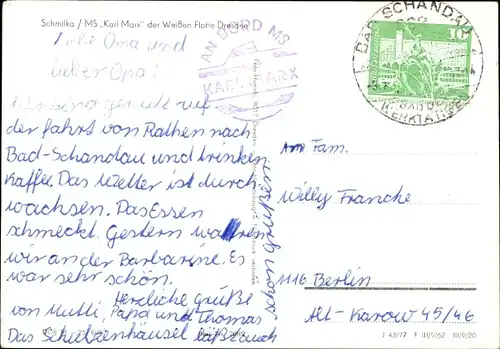 Schmilka / MS „Karl Marx" der Weißen Flotte Dresden
Liebe Oma und
lieber Opa!
Wir sind gerade auf
der Fahrt von Rathen nach
Bad-Schandau und trinken
Kaffee. Das Wetter ist durch
wachsen. Das Essen
schmeckt. Gestern waren
wir an der Barbarine. Es
war sehr schön.
Herzliche Grüße
von Mutti, Papa und Thomas
Das Schützenhäusel läßt auch
schön grüßen
AN BORD MS
KARL MARX
BAD SCHANDAU
10
An Fam.
Willy Francke
1116 Berlin
Alt-Karow 45/46
I 43/77 F III/9/62 III/9/20